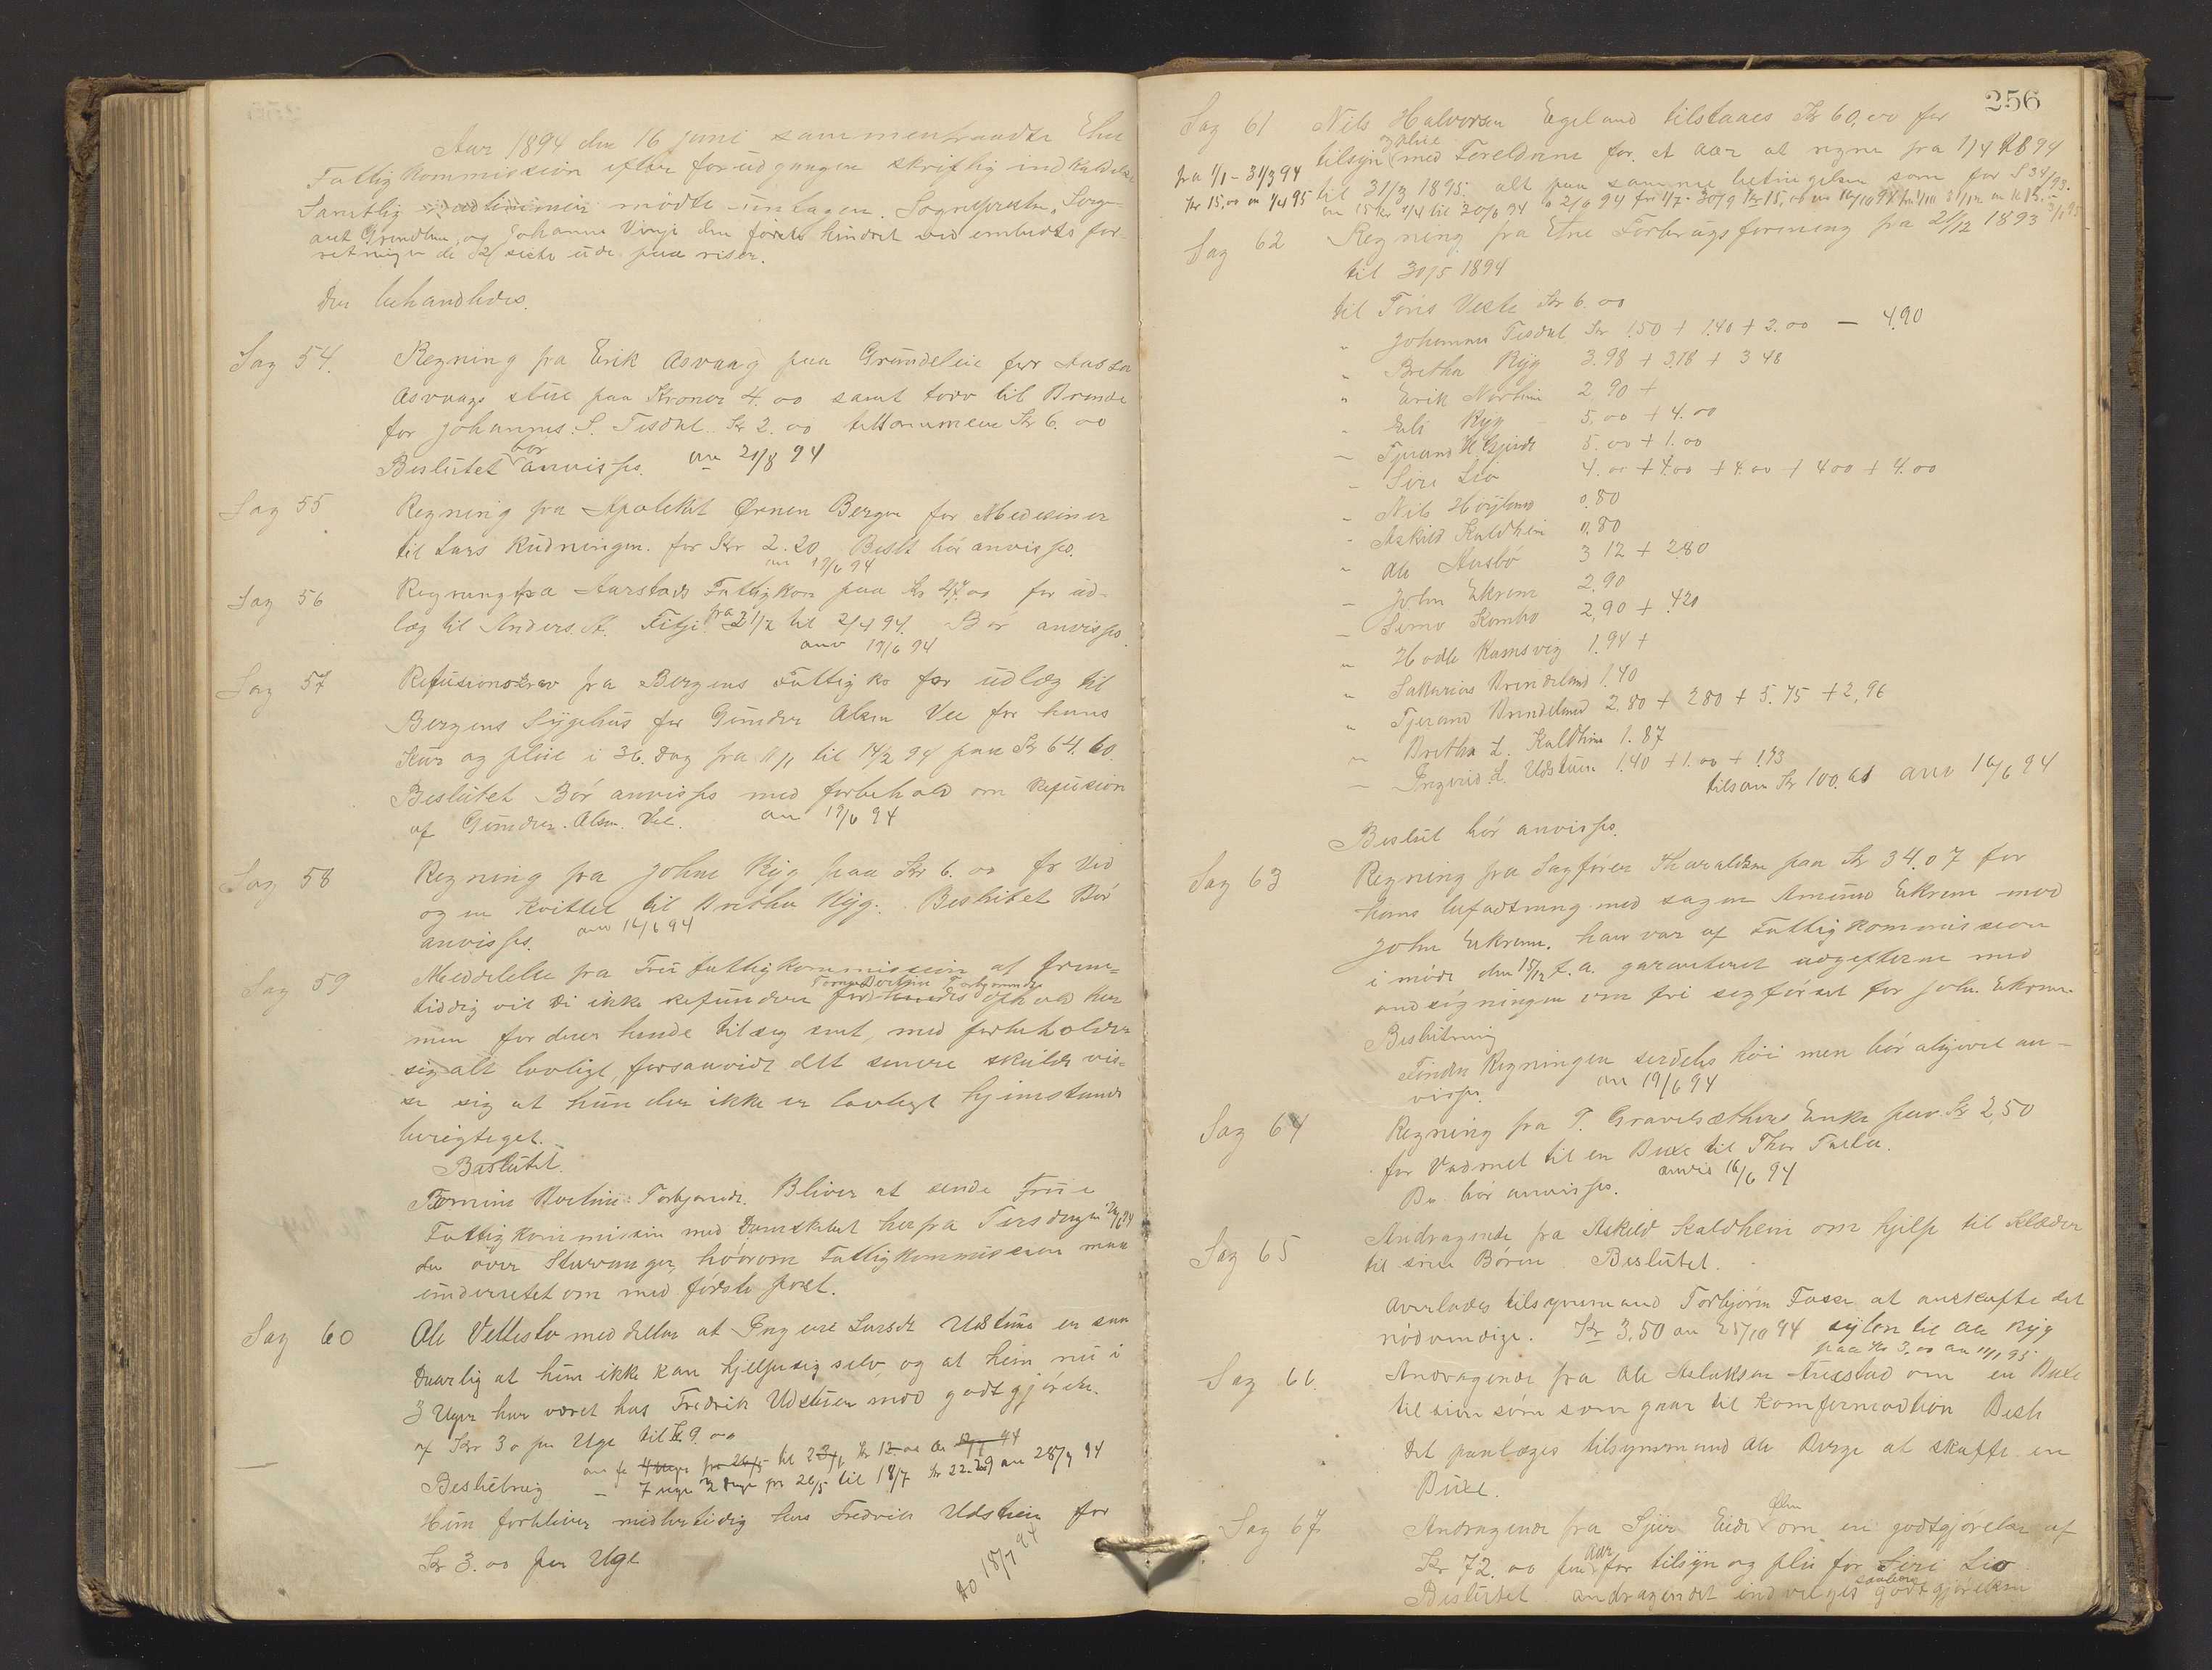 Aar 1894 den 16 juni sammentraadte Etne
Fattigkommission efter forudgaaen skriftlig indkaldelse
Samtlig medlemmer mødte undtagen Sognepresten, Lærge-
aut Grindhm, og Johannes Vinje den første hindret ved embedts for-
retninger de 2/ siste ude paa reiser.
Der behandledes.
Sag 54. Regning fra Erik Asvaag paa Grundleie for Lassa
Asvaags stue paa Kroner 4.00 samt torv til Brænde
for Johannes. S. Tesdal Kr 2.00 tilsammene Kr 6.00
Beslutet bør anvisses. an 21/8 94
Sag 55 Regning fra Apoteket Ørnen Bergen for Medesiner
til Lars Rudningen. for Kr 2.20 Beslt bør anvisses.
an 19/6 94
Sag 56 Regning fra Aarstads Fattigkom paa Kr 27.00 for ud-
læg til Anders. A. Fitje. fra 21/2 til 2/4 94. Bør anvisses.
anv 19/6 94
Sag 57 Refusionskrav fra Bergens Fattigko for udlæg til
Bergens Sygehus for Gunder Olsen Vee for hans
Kur og pleie i 36. Dag fra 11/1 til 14/2 94 paa Kr 64.60.
Beslutet Bør anvisses med forbehold om Refusion
af Gunder. Olsen. Vee. an 19/6 94
Sag 58 Regning fra Johne Ryg paa Kr 6.00 for Ved
og en Kvittel til Bretha Ryg. Beslutet Bør
anvisses. anv 16/6 94
Sag 59 Meddelelse fra Frue fattigkommission at frem-
Tomine Dortine Torbjørnsdr
tiddig vil Di ikke refundere for hendes ophold her
men fordrer hende tilseg sent, med forbeholder
sig alt lovligt, forsaavidt dett senere skulde vis-
se sig at hun der ikke er lovlegt hjemstands
berigteget.
Beslutet.
Tomine Dortine Torbjørnsdr. Bliver at sende Frue
Fattigkommision med Damskibet herfra Tirsdagen 26/6 94
du over Stavanger, hvorom Fattigkommissionen maa
underretet om med første post.
Sag 60 Ole Vettestø meddeller at Ingerie Larsdt Udstuue er saa
Daarlig at hun ikke kan hjelpe sig selv og at hun nu i
3 Uger har været hos Fredrik Udstuen mod godtgjørelse.
af Kr 3.0 per Uge til Kr 9.00
an for 4 Uger fra 26/5 til 23/6 Kr 12.00 an 17/7 94
Beslutning — 7 uger 3 Dage fra 26/5 til 18/7 Kr 22.29 an 28/7 94
Hun forbliver midlertidig hos Fredrik Udstuen for
Kr 3.00 per Uge
Do 18/7 94
256
Sag 61 Nils Halvorsen Egeland tilstaaes Kr 60,00 for
og pleie
tilsyn med Foreldrene for. et aar at regne fra 1/4 1894
fra 1/1 - 31/3 94 til 31/3 1895. alt paa samme betingelser som for S 34/93.
Kr 15,00 an 1/4 95 an 15 Kr 1/4 til 30/6 94 a 2/9 94 for 1/7-30/9 Kr 15,00 an 16/10 94
Sag 62 Regning fra Etne Forbrugsforening fra 21/12 1893
til 30/5 1894
til Tøris Veste Kr 6.00
" Johannes Tesdal Kr 1.50 + 1.40 + 2.00 — 4.90
" Bretha Ryg 3.98 + 3.18 + 3 48
" Erik Nørheim 2,90 +
" Eli Ryg 5,00 + 4.00
— Tjerand H. Gjerde 5.00 + 1.00
— Siri Lio 4.00 + 4.00 + 4.00 + 4.00 + 4.00
" Nils Høyland 0.80
" Askild Kaldheim 0.80
" Ole Ausbø 3 12 + 2.80
— John Ekrem 2.90
— Simo Rømho 2,90 + .420
" Hodle Ramsvig 1.94 +
" Sakarias Brendeland 1.40
" Tjerand Brendeland 2.80 + 280 + 5.75 + 2,96
" Bretha L. Kaldheim 1.87
— Ingerid. L. Udstuen 1.40 + 1.00 + 1.73
tilsam Kr 100.61 anv 16/6 94
Beslut bør anvisses.
Sag 63 Regning fra Sagfører Tharaldsen paa Kr 34.07 for
hans befadtning med sagen Amund Ekrem mod
John Ekrem. han var af Fattigkommissionen
i møde den 15/12 f.a. garanteret udgifterne med
andsøgningen om fri sagførsel for John Ekrem.
Beslutning
Finder Regningen serdeles høi men bør aligevel an-
visses. an 19/6 94
Sag 64 Regning fra T. Gravelsæthers Enke paa Kr 2,50
for Vadmel til en Buxe til Thor Tuelu.
Be bør anvisses. anvis 16/6 94
Sag 65 Andragende fra Askild Kaldhein om hjelp til Klæder
til sine Børen. Beslutet.
Averlades tilsynsmand Torbjørn Fosse at anskaffe det
nødvendige. Kr 3,50 an 25/10 94 sylen til Ole Ryg
paa Kr 3.00 an 11/1 95
Sag 66. Andragende fra Ole Aslaksen Fuestad om en Buxe
til sin søn som gaar til Komfermadtion Besl
Det paalægges tilsynsmand Ole Berge at skaffe en
Buxe.
Sag 67. Andragende fra Sjur Eide Ølen om en godtgjørelse af
Kr 72.00 per Aar for tilsyn og pleie for Siri Lio
Beslutet andragendet indvelges saalænge godtgjørelsen